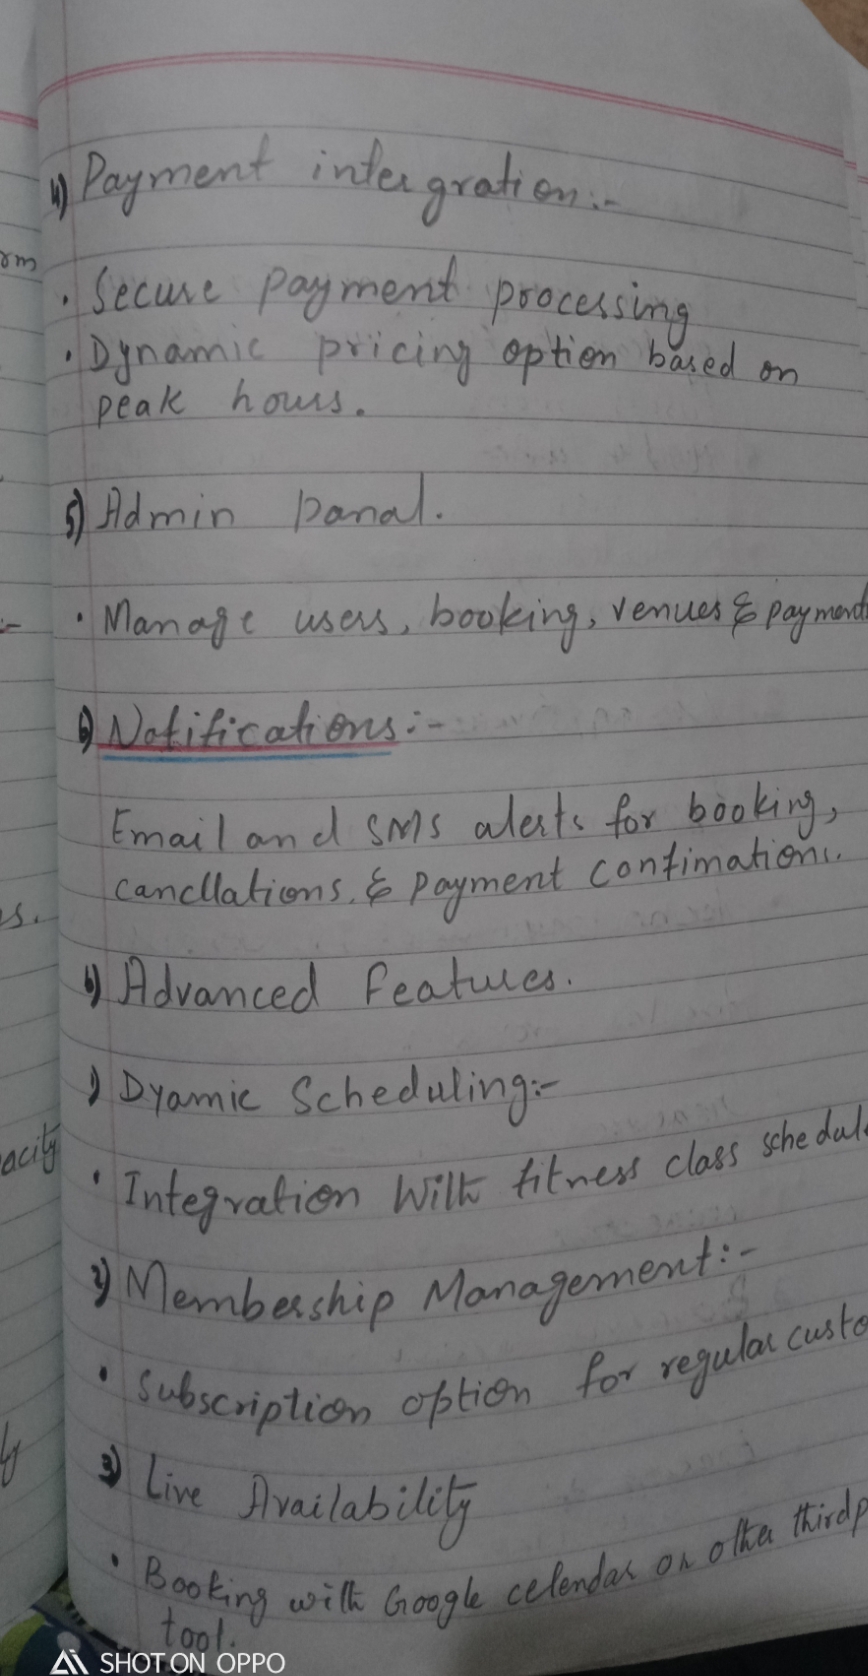 4) Payment intergration:-
• Secure payment processing
• Dynamic pricing option based on
peak hours.
5) Admin panal.
• Manage users, booking, venues & payment
6) Notifications:-
Email and SMS alerts for booking,
cancllations, & payment confimations.
6) Advanced Features.
1) Dyamic Scheduling:-
• Integration with fitness class schedul
2) Membership Management:-
• subscription option for regular custo
3) Live Availability
• Booking with Google celendar or other thirdp
tool.
rm
:-
s.
acity
ly
SHOT ON OPPO